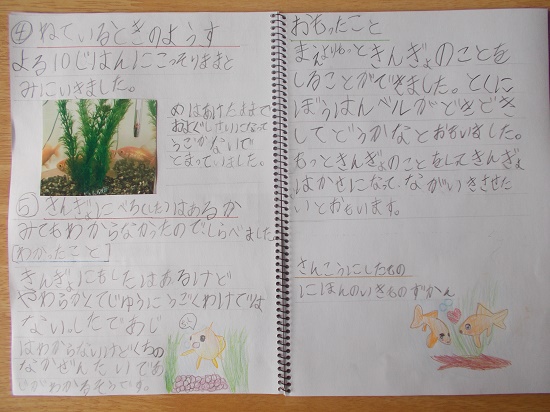 ④ ねているときのようす
よる10じはんにこっそりままと
みにいきました。
めはあけたままで
およぐしせいになって
うごかないで
とまっていました。
⑤ きんぎょにべろ(した)はあるか
みてもわからなかったのでしらべました
[わかったこと]
きんぎょにもしたはあるけど
やわらかくてじゆうにうごくわけでは
ない。したであじ
はわからないけどくちの
なかぜんたいであ
じがわかるそうです。
おもったこと
まえよりもっときんぎょのことを
しることができました。とくに
ぼうはんベルがどきどき
してどうかなとおもいました。
もっときんぎょのことをしってきんぎょ
はかせになって、ながいきさせた
いとおもいます。
さんこうにしたもの
にほんのいきものずかん